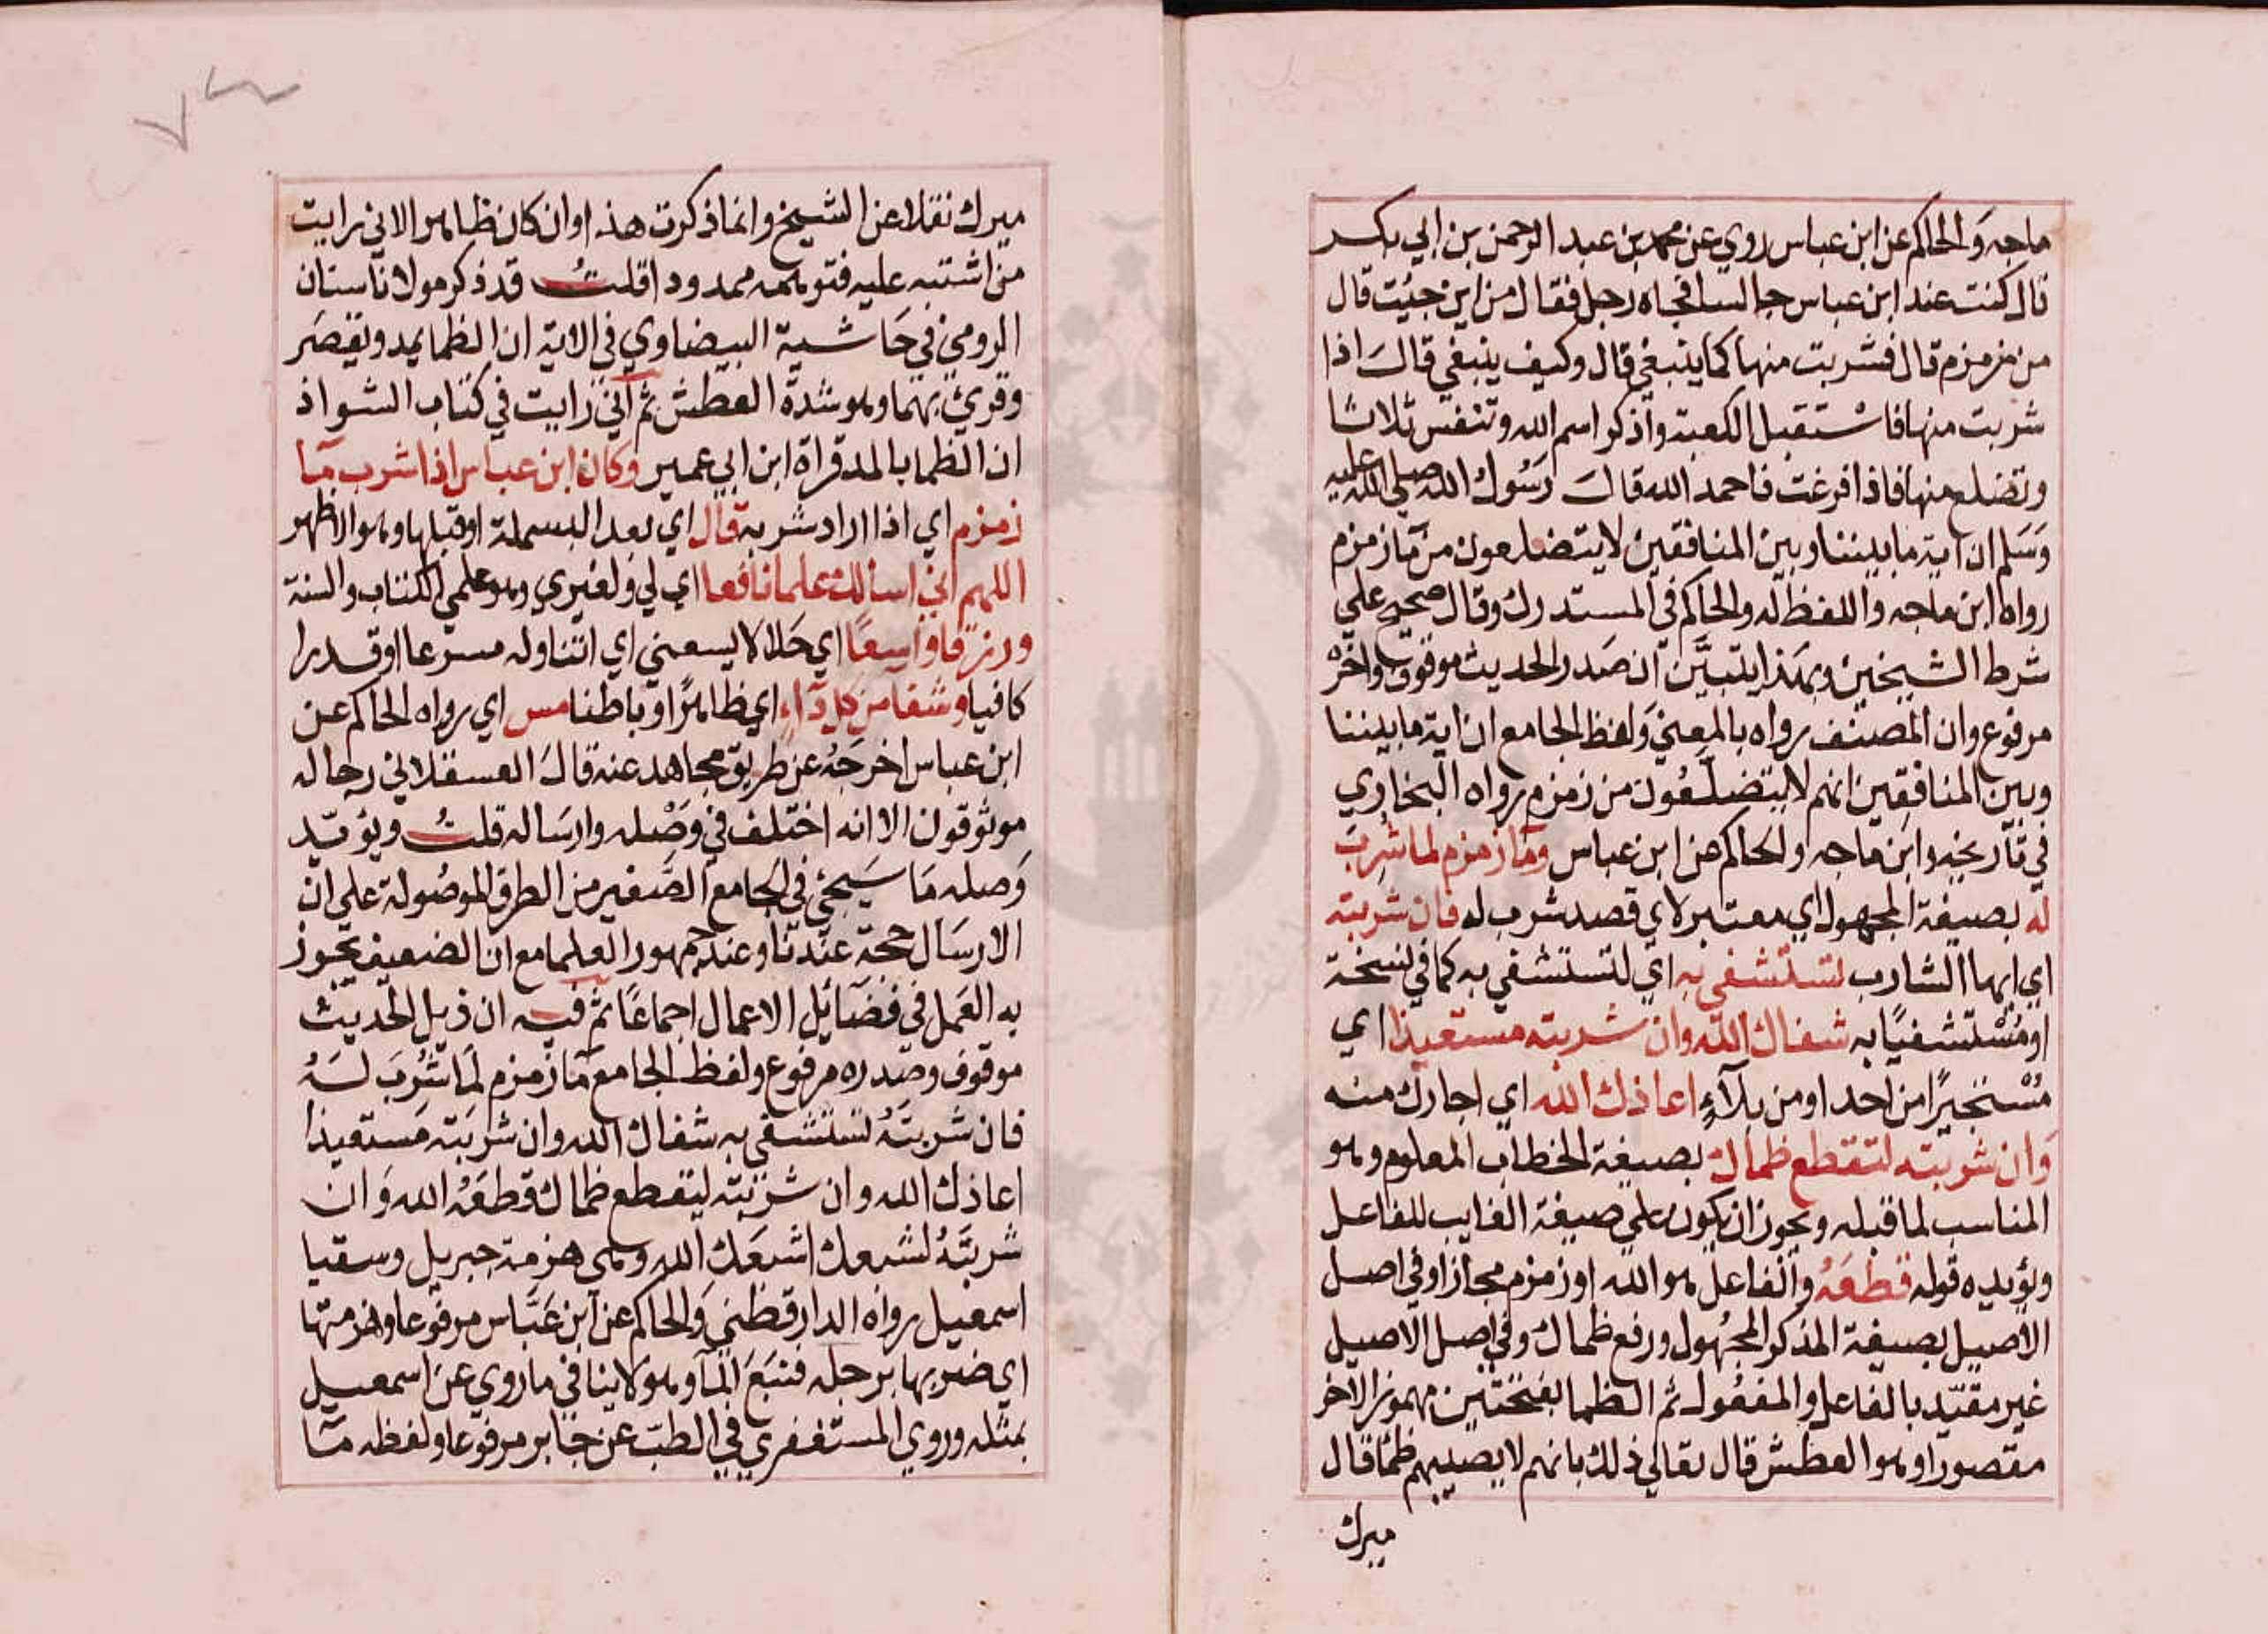 ماجه والحاكم عن ابن عباس روي عن محمد بن عبد الرحمن بن ابي بكر
قال كنت عند ابن عباس جالسا فجاه رجل فقال من اين جيئت قال
من زمزم قال فشربت منها كما ينبغي قال وكيف ينبغي قال اذا
شربت منها فاستقبل الكعبة واذكر اسم الله وتنفس ثلاثا
وتضلع منها فاذا فرغت فاحمد الله قال رسول الله صلى الله عليه
وسلم ان اية ما بيننا وبين المنافقين لا يتضلعون من مآ زمزم
رواه ابن ماجه واللفظ له والحاكم في المستدرك وقال صحيح علي
شرط الشيخين وبهذا يتبين ان صدر الحديث موقوف واخره
مرفوع وان المصنف رواه بالمعني ولفظ الجامع ان اية ما بيننا
وبين المنافقين انهم لا يتضلعون من زمزم رواه البخاري
في تاريخه وابن ماجه والحاكم عن ابن عباس ومآ زمزم لما شرب
له بصيغة المجهول اي معتبر لاي قصد شرب له فان شربته
اي ايها الشارب تستشفي به اي لتستشفي به كما في نسخة
او مستشفيا به شفاك الله وان شربته مستعيذا اي
مستجيرا من احد او من بلاء اعاذك الله اي اجارك منه
وان شربته لتقطع ظماك بصيغة الخطاب المعلوم وهو
المناسب لما قبله ويجوز ان يكون علي صيغة الغايب للفاعل
ويؤيده قوله قطعه والفاعل هو الله او زمزم مجازا وفي اصل
الاصيل بصيغة المذكر المجهول ورفع ظماك وفي اصل الاصيل
غير مقيد بالفاعل والمفعول ثم الظما بفتحتين مهموز الاخر
مقصورا وهو العطش قال تعالي ذلك بانهم لا يصيبهم ظمأ قال
ميرك
ميرك نقلا عن الشيخ وانما ذكرت هذا وان كان ظاهرا لاني رايت
من اشتبه عليه فتوهمه ممدودا قلت قد ذكر مولانا سنان
الرومي في حاشية البيضاوي في الاية ان الظما يمد ويقصر
وقرئ بهما وهو شدة العطش ثم اني رايت في كتاب الشواذ
ان الظما بالمد قراة ابن ابي عمير وكان ابن عباس اذا شرب مآ
زمزم اي اذا اراد شربه قال اي بعد البسملة او قبلها وهو الاظهر
اللهم اني اسالك علما نافعا اي لي ولغيري وهو علمي الكتاب والسنة
ورزقا واسعا اي حلالا يسعني اي اتناوله مسرعا او قدرا
كافيا وشفا من كل دآء اي ظاهرا وباطنا مس اي رواه الحاكم عن
ابن عباس اخرجه عن طريق مجاهد عنه قال العسقلاني رجاله
موثوقون الا انه اختلف في وصله وارساله قلت ويؤيد
وصله ما سيجئ في الجامع الصغير من الطرق الموصولة علي ان
الارسال حجة عندنا وعند جمهور العلما مع ان الضعيف يجوز
به العمل في فضآئل الاعمال اجماعا ثم فيه ان ذيل الحديث
موقوف وصدره مرفوع ولفظ الجامع مآ زمزم لما شرب له
فان شربته تستشفي به شفاك الله وان شربته مستعيذا
اعاذك الله وان شربته ليقطع ظماك قطعه الله وان
شربته لشبعك اشبعك الله وهي هزمة جبريل وسقيا
اسمعيل رواه الدارقطني والحاكم عن ابن عباس مرفوعا وهزمتها
اي ضربها برجله فنبع المآ وهو لا ينافي ما روي عن اسمعيل
بمثله وروي المستغفري في الطب عن جابر مرفوعا ولفظه مآ